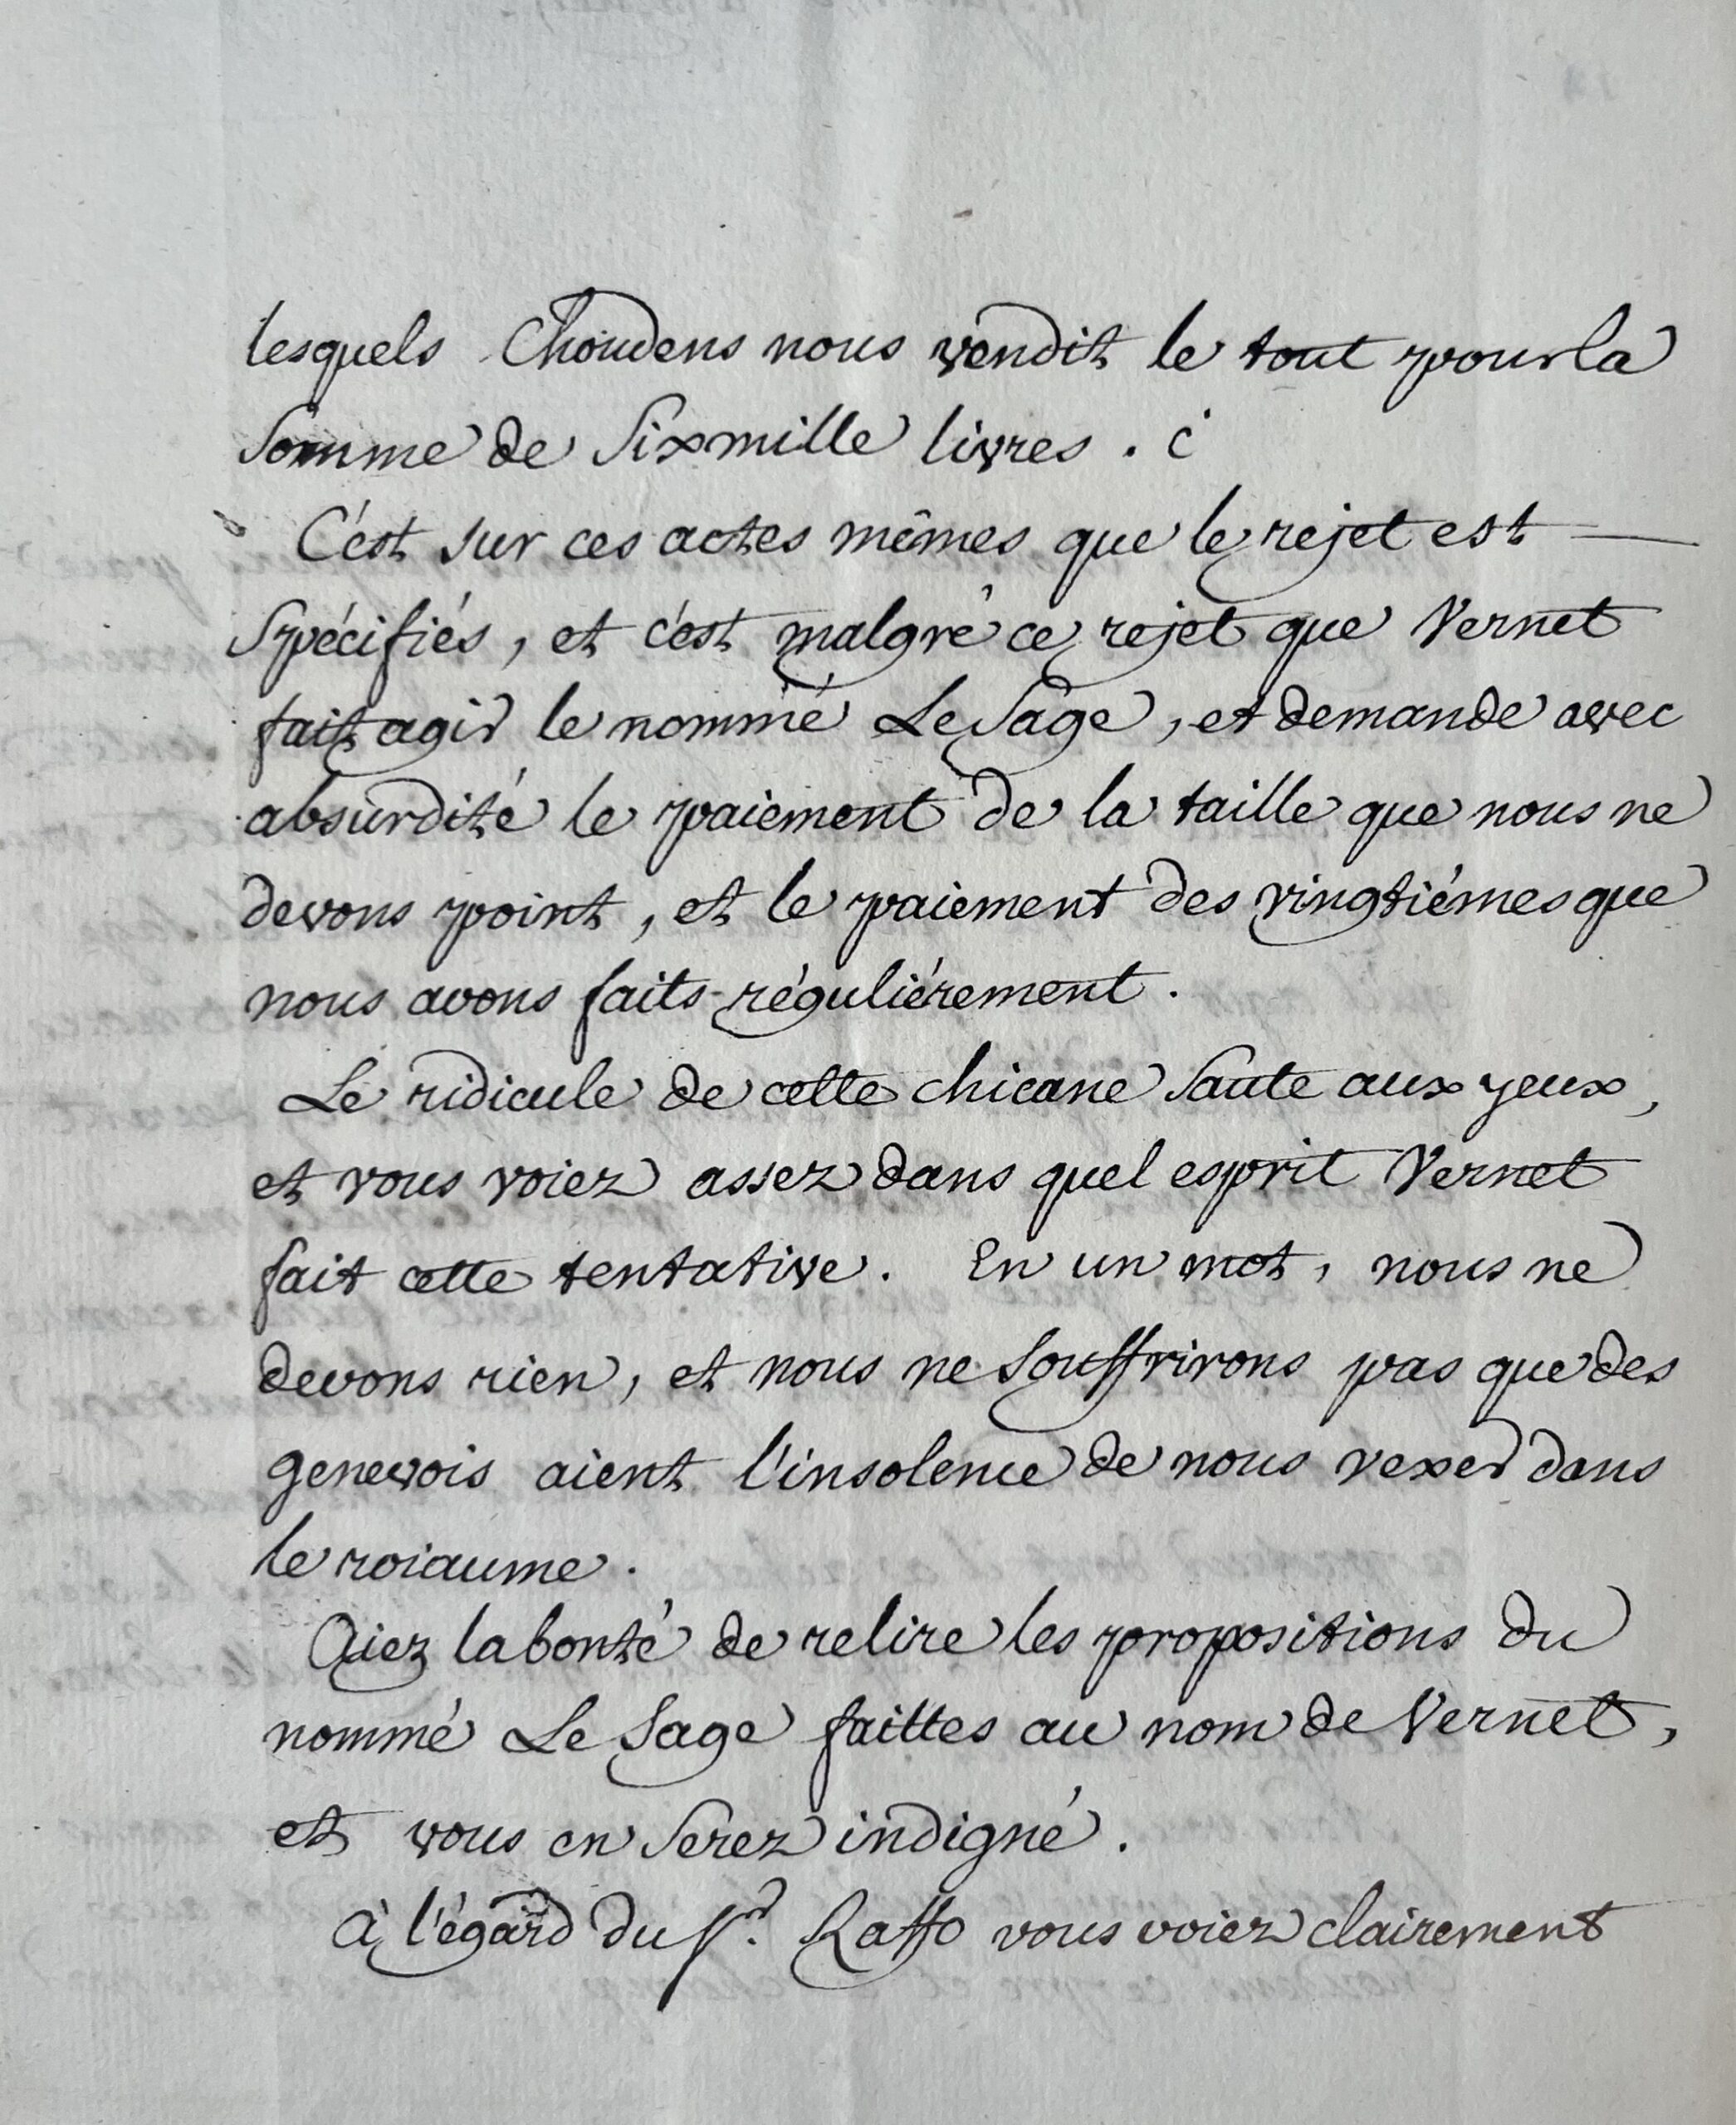 lesquels Choudens nous vendit le tout pour la
Somme de Six mille livres . c'
C'est sur ces actes mêmes que le rejet est —
Spécifiés, et c'est malgré ce rejet que Vernet
fait agir le nommé Le Sage, et demande avec
absurdité le paiement de la taille que nous ne
devons point, et le paiement des vingtiémes que
nous avons faits réguliérement.
Le ridicule de cette chicane Saute aux yeux,
et vous voiez assez dans quel esprit Vernet
fait cette tentative. En un mot, nous ne
devons rien, et nous ne Souffrirons pas que des
genevois aient l'insolence de nous vexer dans
le roiaume.
Aiez la bonté de relire les propositions du
nommé Le Sage faittes au nom de Vernet,
et vous en Serez indigné.
À l'égard du Sr. Raffo vous voiez clairement